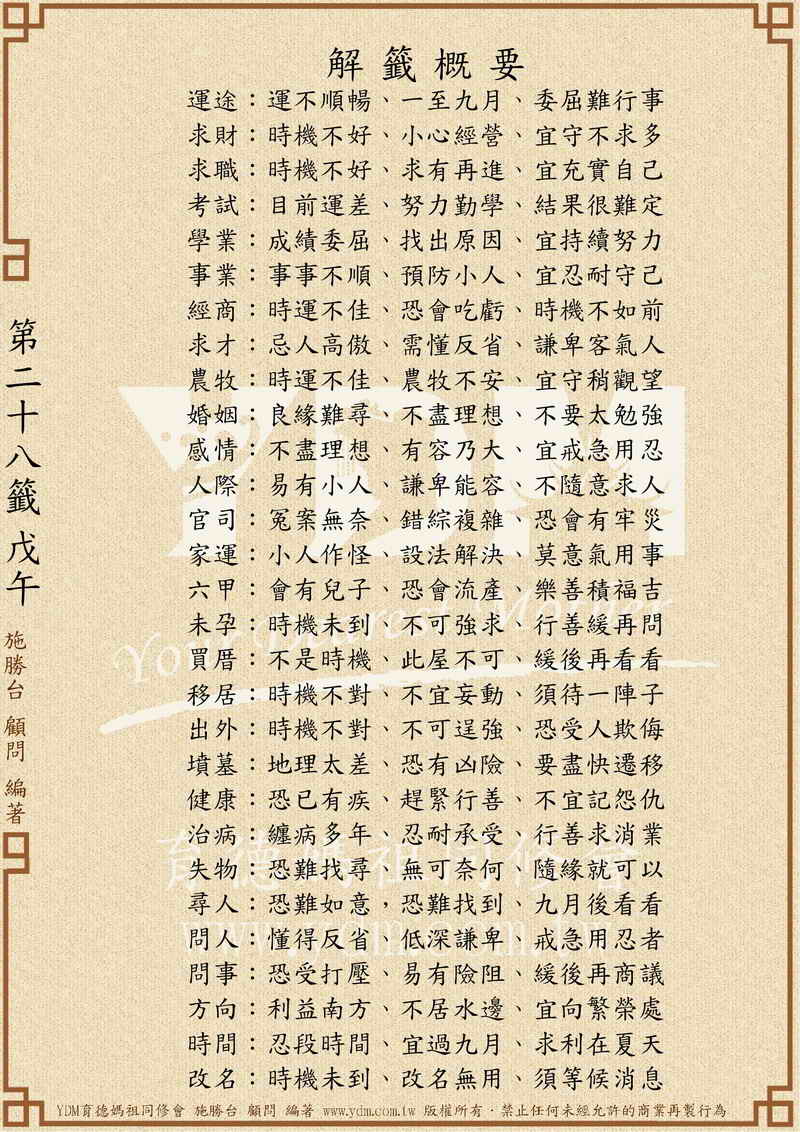 解籤概要
運途：運不順暢、一至九月、委屈難行事
求財：時機不好、小心經營、宜守不求多
求職：時機不好、求有再進、宜充實自己
考試：目前運差、努力勤學、結果很難定
學業：成績委屈、找出原因、宜持續努力
事業：事事不順、預防小人、宜忍耐守己
經商：時運不佳、恐會吃虧、時機不如前
求才：忌人高傲、需懂反省、謙卑客氣人
農牧：時運不佳、農牧不安、宜守稍觀望
婚姻：良緣難尋、不盡理想、不要太勉強
感情：不盡理想、有容乃大、宜戒急用忍
人際：易有小人、謙卑能容、不隨意求人
官司：冤案無奈、錯綜複雜、恐會有牢災
家運：小人作怪、設法解決、莫意氣用事
六甲：會有兒子、恐會流產、樂善積福吉
未孕：時機未到、不可強求、行善緩再問
買厝：不是時機、此屋不可、緩後再看看
移居：時機不對、不宜妄動、須待一陣子
出外：時機不對、不可逞強、恐受人欺侮
墳墓：地理太差、恐有凶險、要盡快遷移
健康：恐已有疾、趕緊行善、不宜記怨仇
治病：纏病多年、忍耐承受、行善求消業
失物：恐難找尋、無可奈何、隨緣就可以
尋人：恐難如意，恐難找到、九月後看看
問人：懂得反省、低深謙卑、戒急用忍者
問事：恐受打壓、易有險阻、緩後再商議
方向：利益南方、不居水邊、宜向繁榮處
時間：忍段時間、宜過九月、求利在夏天
改名：時機未到、改名無用、須等候消息
第二十八籤 戊午
施勝台 顧問 編著
YDM
Your Dearest Mother
育德媽祖同修會
www.ydm.com.tw
YDM育德媽祖同修會 施勝台 顧問 編著 www.ydm.com.tw 版權所有．禁止任何未經允許的商業再製行為